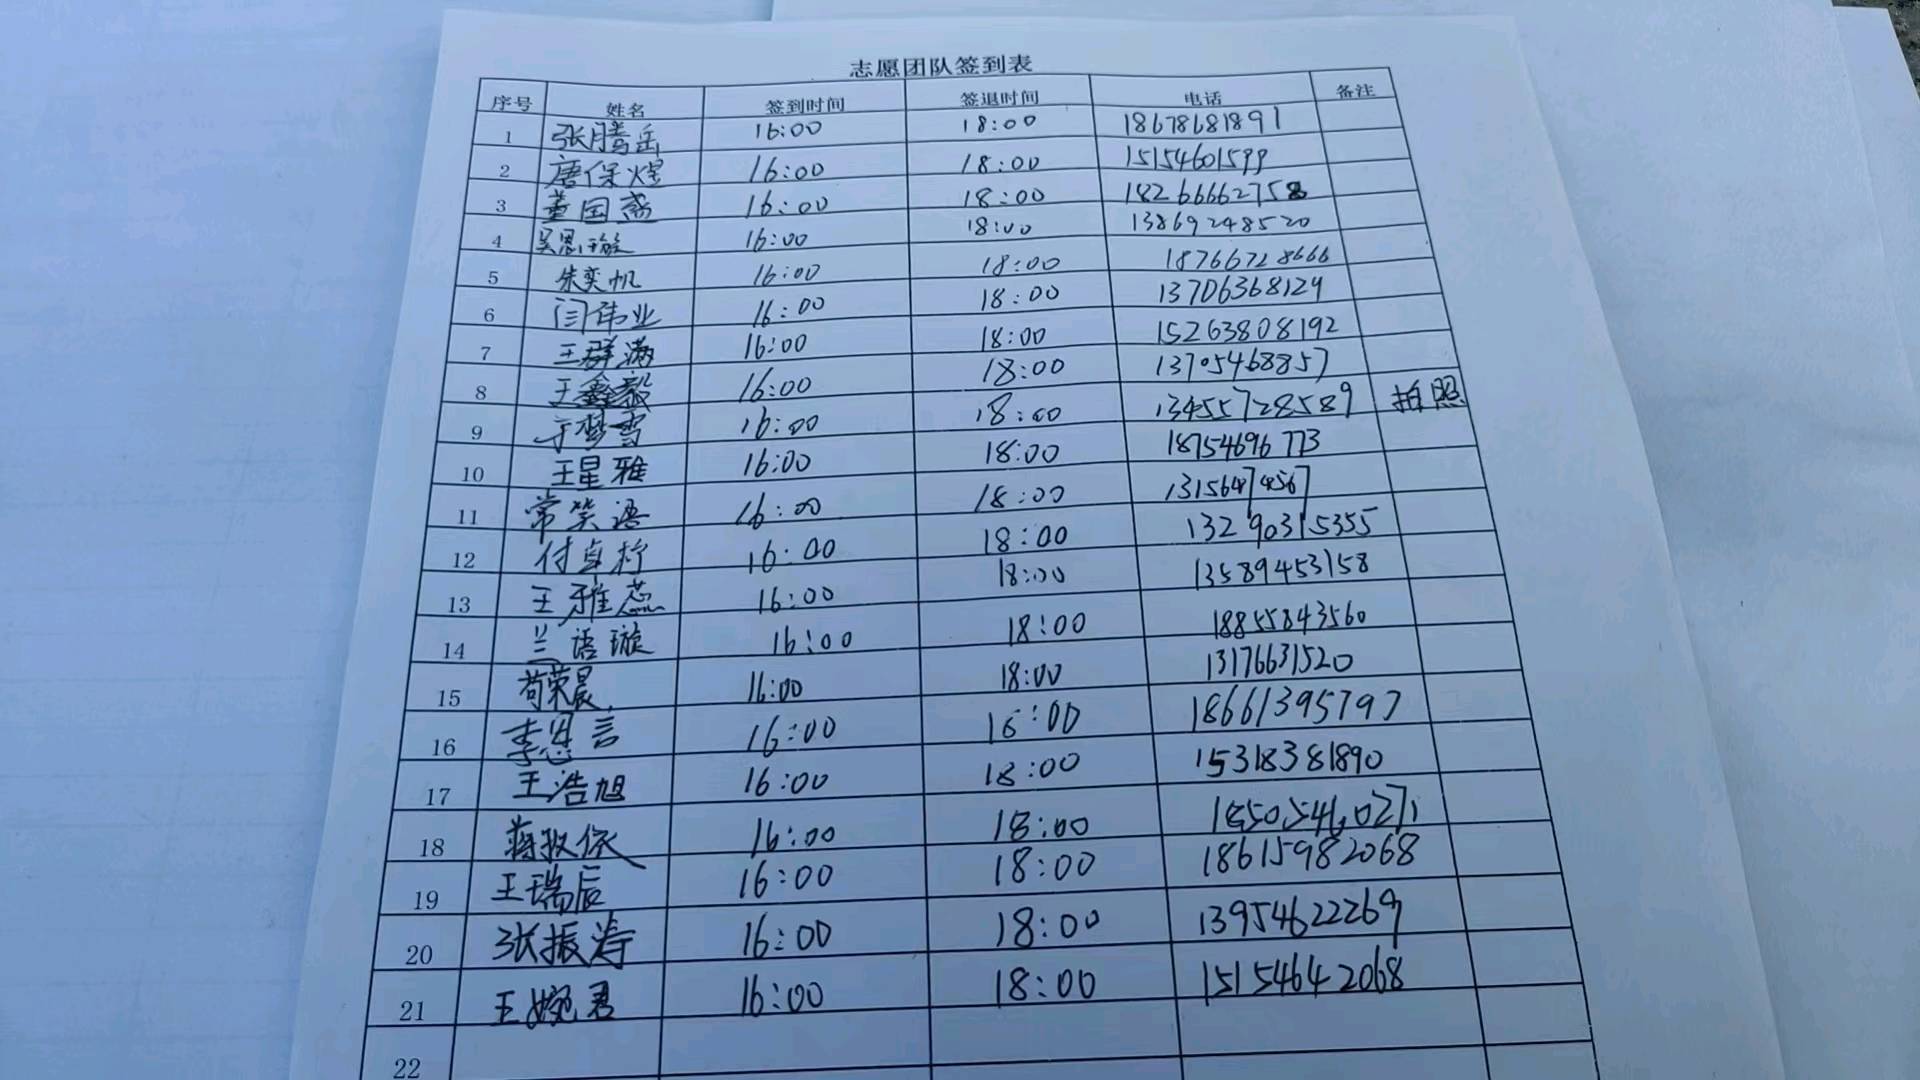 志愿团队签到表
序号 姓名 签到时间 签退时间 电话 备注
1 张腾岳 16:00 18:00 18678681891
2 唐保煜 16:00 18:00 15154601599
3 董国鑫 16:00 18:00 18266662758
4 吴恩璇 16:00 18:00 13869248520
5 朱奕帆 16:00 18:00 18766728666
6 闫伟业 16:00 18:00 13706368129
7 王群满 16:00 18:00 15263808192
8 王鑫毅 16:00 18:00 13705468857
9 于梦雪 16:00 18:00 13455728589 拍照
10 王星雅 16:00 18:00 18754696773
11 常笑语 16:00 18:00
12 付贞柠 16:00 18:00 13290315355
13 王雅蕊 16:00 18:00 13589453158
14 兰语璇 16:00 18:00 18855843560
15 苟荣晨 16:00 18:00 13176631520
16 李恩言 16:00 16:00 18661395797
17 王浩旭 16:00 18:00 15318381890
18 蒋孜依 16:00 18:00 18505460271
19 王瑞辰 16:00 18:00 18615982068
20 张振涛 16:00 18:00 13954622269
21 王婉君 16:00 18:00 15154642068
22